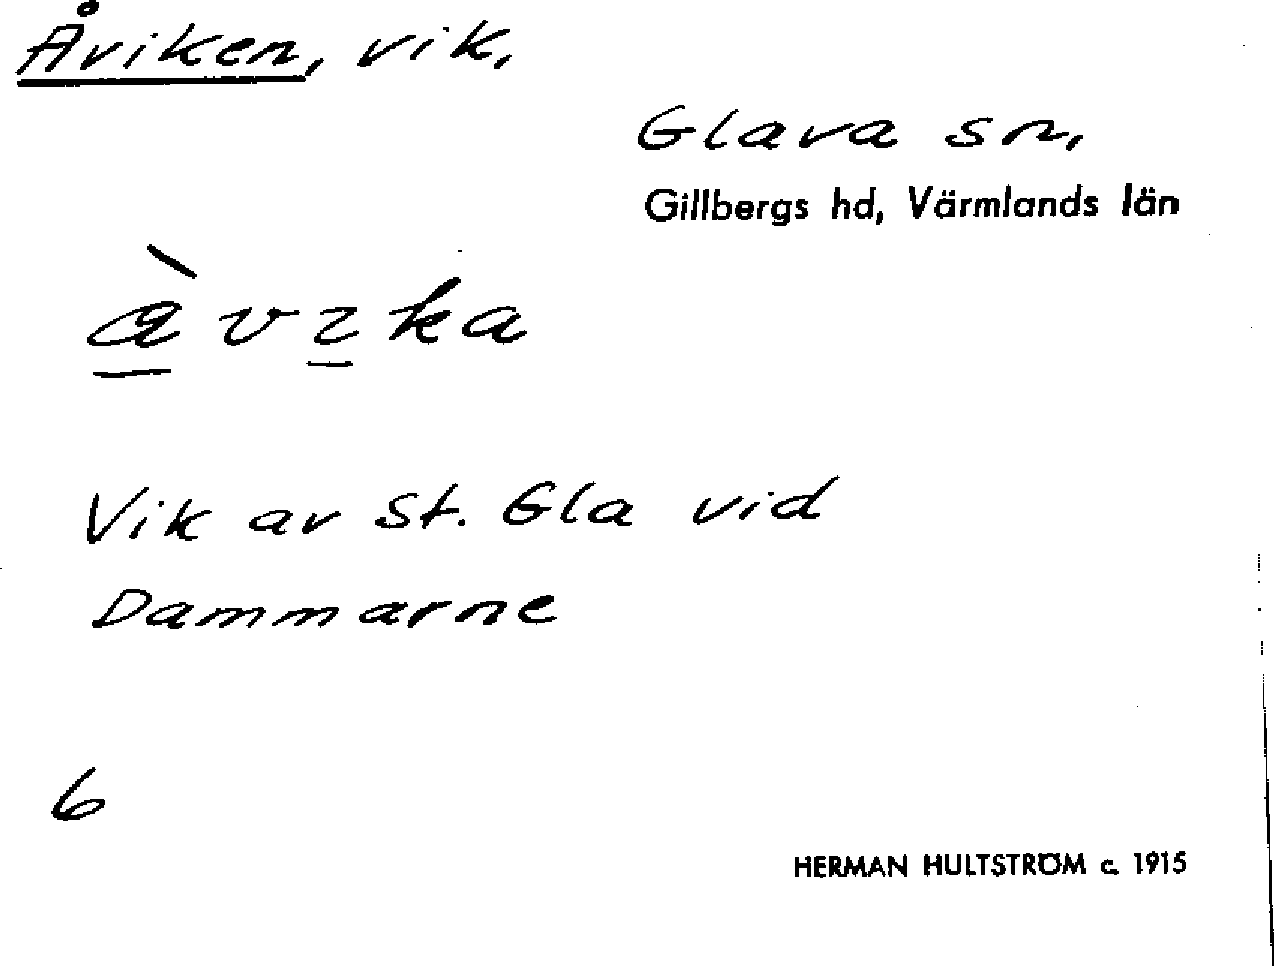 Åviken, vik,
Glava sn,
Gillbergs hd, Värmlands län
åv̀ıka
Vik av St. Gla vid
Dammarne
6
HERMAN HULTSTRÖM c. 1915